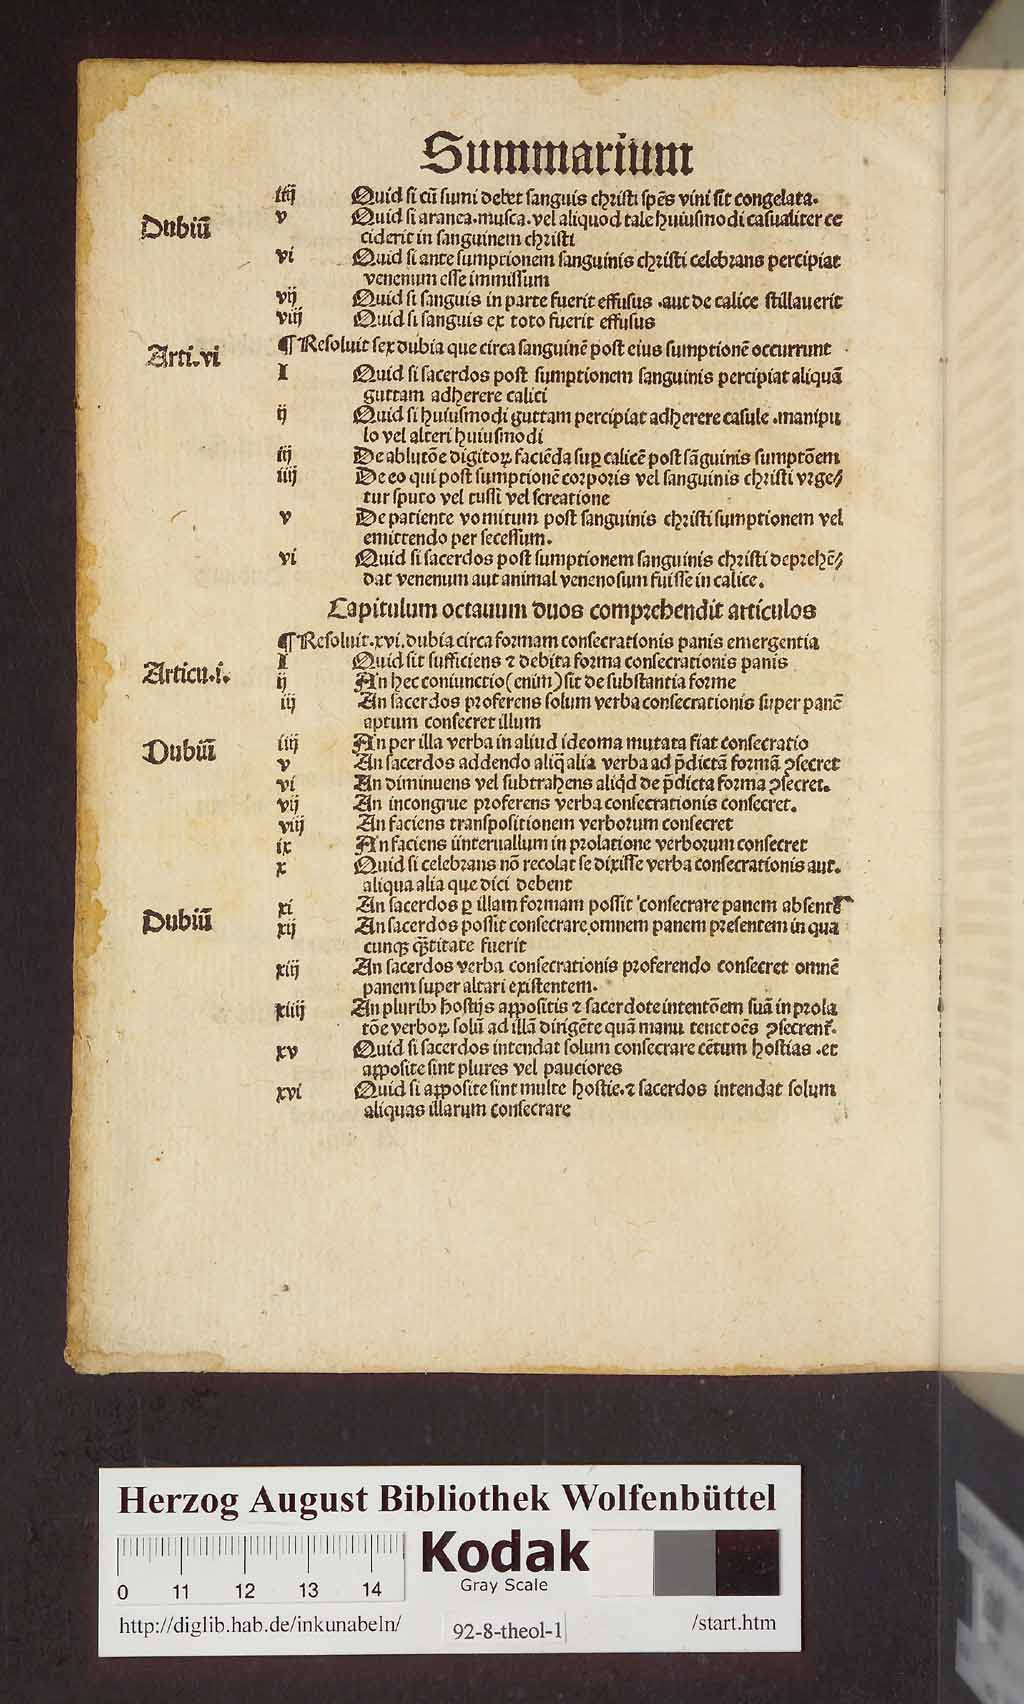 Summarium
iiij Quid si cū sumi debet sanguis christi spēs vini sit congelata.
Dubiū
v Quid si aranea.musca.vel aliquod tale huiusmodi casualiter ce
ciderit in sanguinem christi
vi Quid si ante sumptionem sanguinis christi celebrans percipiat
venenum esse immissum
vij Quid si sanguis in parte fuerit effusus .aut de calice stillauerit
viij Quid si sanguis ex toto fuerit effusus
Arti.vi
¶ Resoluit sex dubia que circa sanguinē post eius sumptionē occurrunt
I Quid si sacerdos post sumptionem sanguinis percipiat aliquā
guttam adherere calici
ij Quid si huiusmodi guttam percipiat adherere casule .manipu
lo vel alteri huiusmodi
iij De ablutōe digitoꝝ faciēda suꝑ calicē post sāguinis sumptōem
iiij De eo qui post sumptionē corporis vel sanguinis christi vrge⸗
tur sputo vel tussi vel screatione
v De patiente vomitum post sanguinis christi sumptionem vel
emittendo per secessum.
vi Quid si sacerdos post sumptionem sanguinis christi deprehē⸗
dat venenum aut animal venenosum fuisse in calice.
Capitulum octauum duos comprehendit articulos
¶ Resoluit.xvi.dubia circa formam consecrationis panis emergentia
Articu.i.
I Quid sit sufficiens ⁊ debita forma consecrationis panis
ij An hec coniunctio(enim)sit de substantia forme
iij An sacerdos proferens solum verba consecrationis super panē
aptum consecret illum
Dubiū
iiij An per illa verba in aliud ideoma mutata fiat consecratio
v An sacerdos addendo aliq̄ alia verba ad p̄dictā formā ꝯsecret
vi An diminuens vel subtrahens aliqd de p̄dicta forma ꝯsecret.
vij An incongrue proferens verba consecrationis consecret.
viij An faciens transpositionem verborum consecret
ix An faciens interuallum in prolatione verborum consecret
x Quid si celebrans nō recolat se dixisse verba consecrationis aut.
aliqua alia que dici debent
Dubiū
xi An sacerdos ꝑ illam formam possit consecrare panem absentē
xij An sacerdos possit consecrare omnem panem presentem in qua
cunqꝫ q̄titate fuerit
xiij An sacerdos verba consecrationis proferendo consecret omnē
panem super altari existentem.
xiiij An pluribꝰ hostijs appositis ⁊ sacerdote intentōem suā in prola
tōe verboꝝ solū ad illā dirigēte quā manu tenet oēs ꝯsecrent̄.
xv Quid si sacerdos intendat solum consecrare cētum hostias .et
apposite sint plures vel pauciores
xvi Quid si apposite sint multe hostie.⁊ sacerdos intendat solum
aliquas illarum consecrare
Herzog August Bibliothek Wolfenbüttel
0 11 12 13 14
Kodak
Gray Scale
http://diglib.hab.de/inkunabeln/ 92-8-theol-1 /start.htm